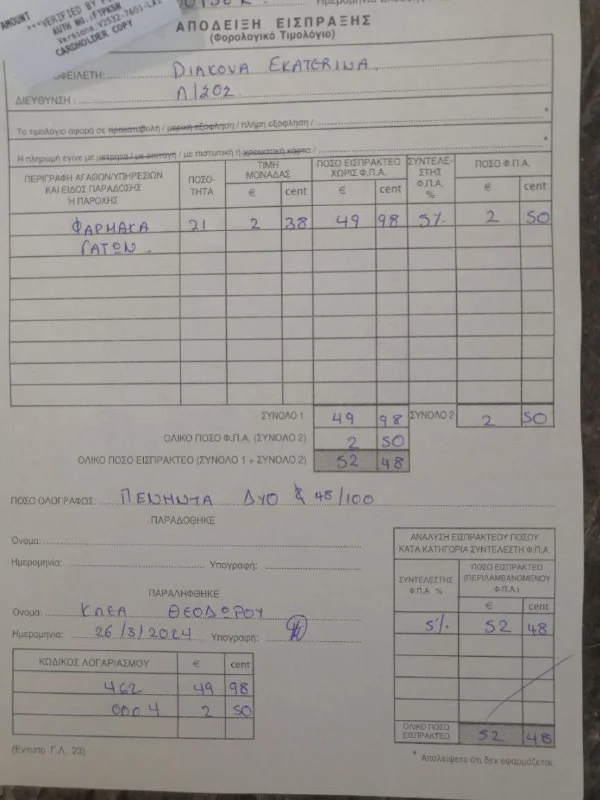 AMOUNT
***VERIFIED BY P
AUTH NO.:PTPKSM
CARDHOLDER COPY
ΑΠΟΔΕΙΞΗ ΕΙΣΠΡΑΞΗΣ
(Φορολογικό Τιμολόγιο)
ΟΦΕΙΛΕΤΗ: DIAKOVA EKATERINA
ΔΙΕΥΘΥΝΣΗ : Π/202
Το τιμολόγιο αφορά σε προκαταβολή / μερική εξόφληση / πλήρη εξόφληση / *
Η πληρωμή έγινε με μετρητά / με επιταγή / με πιστωτική ή χρεωστική κάρτα / *
ΠΕΡΙΓΡΑΦΗ ΑΓΑΘΩΝ/ΥΠΗΡΕΣΙΩΝ ΚΑΙ ΕΙΔΟΣ ΠΑΡΑΔΟΣΗΣ Ή ΠΑΡΟΧΗΣ ΠΟΣΟ-ΤΗΤΑ ΤΙΜΗ ΜΟΝΑΔΑΣ ΠΟΣΟ ΕΙΣΠΡΑΚΤΕΟ ΧΩΡΙΣ Φ.Π.Α. ΣΥΝΤΕΛΕ-ΣΤΗΣ Φ.Π.Α. % ΠΟΣΟ Φ.Π.Α.
€ cent € cent € cent
ΦΑΡΜΑΚΑ 21 2 38 49 98 5% 2 50
ΓΑΤΩΝ
ΣΥΝΟΛΟ 1 49 98 ΣΥΝΟΛΟ 2 2 50
ΟΛΙΚΟ ΠΟΣΟ Φ.Π.Α. (ΣΥΝΟΛΟ 2) 2 50
ΟΛΙΚΟ ΠΟΣΟ ΕΙΣΠΡΑΚΤΕΟ (ΣΥΝΟΛΟ 1 + ΣΥΝΟΛΟ 2) 52 48
ΠΟΣΟ ΟΛΟΓΡΑΦΩΣ: ΠΕΝΗΝΤΑ ΔΥΟ & 48/100
ΠΑΡΑΔΟΘΗΚΕ
Όνομα:
Ημερομηνία: Υπογραφή:
ΠΑΡΑΛΗΦΘΗΚΕ
Όνομα: ΚΛΕΑ ΘΕΟΔΩΡΟΥ
Ημερομηνία: 26/3/2024 Υπογραφή:
ΚΩΔΙΚΟΣ ΛΟΓΑΡΙΑΣΜΟΥ € cent
462 49 98
0004 2 50
(Έντυπο Γ.Λ. 23)
ΑΝΑΛΥΣΗ ΕΙΣΠΡΑΚΤΕΟΥ ΠΟΣΟΥ
ΚΑΤΑ ΚΑΤΗΓΟΡΙΑ ΣΥΝΤΕΛΕΣΤΗ Φ.Π.Α.
ΣΥΝΤΕΛΕΣΤΗΣ Φ.Π.Α. % ΠΟΣΟ ΕΙΣΠΡΑΚΤΕΟ (ΠΕΡΙΛΑΜΒΑΝΟΜΕΝΟΥ Φ.Π.Α.)
€ cent
5% 52 48
ΟΛΙΚΟ ΠΟΣΟ ΕΙΣΠΡΑΚΤΕΟ 52 48
* Απαλείψετε ότι δεν εφαρμόζεται